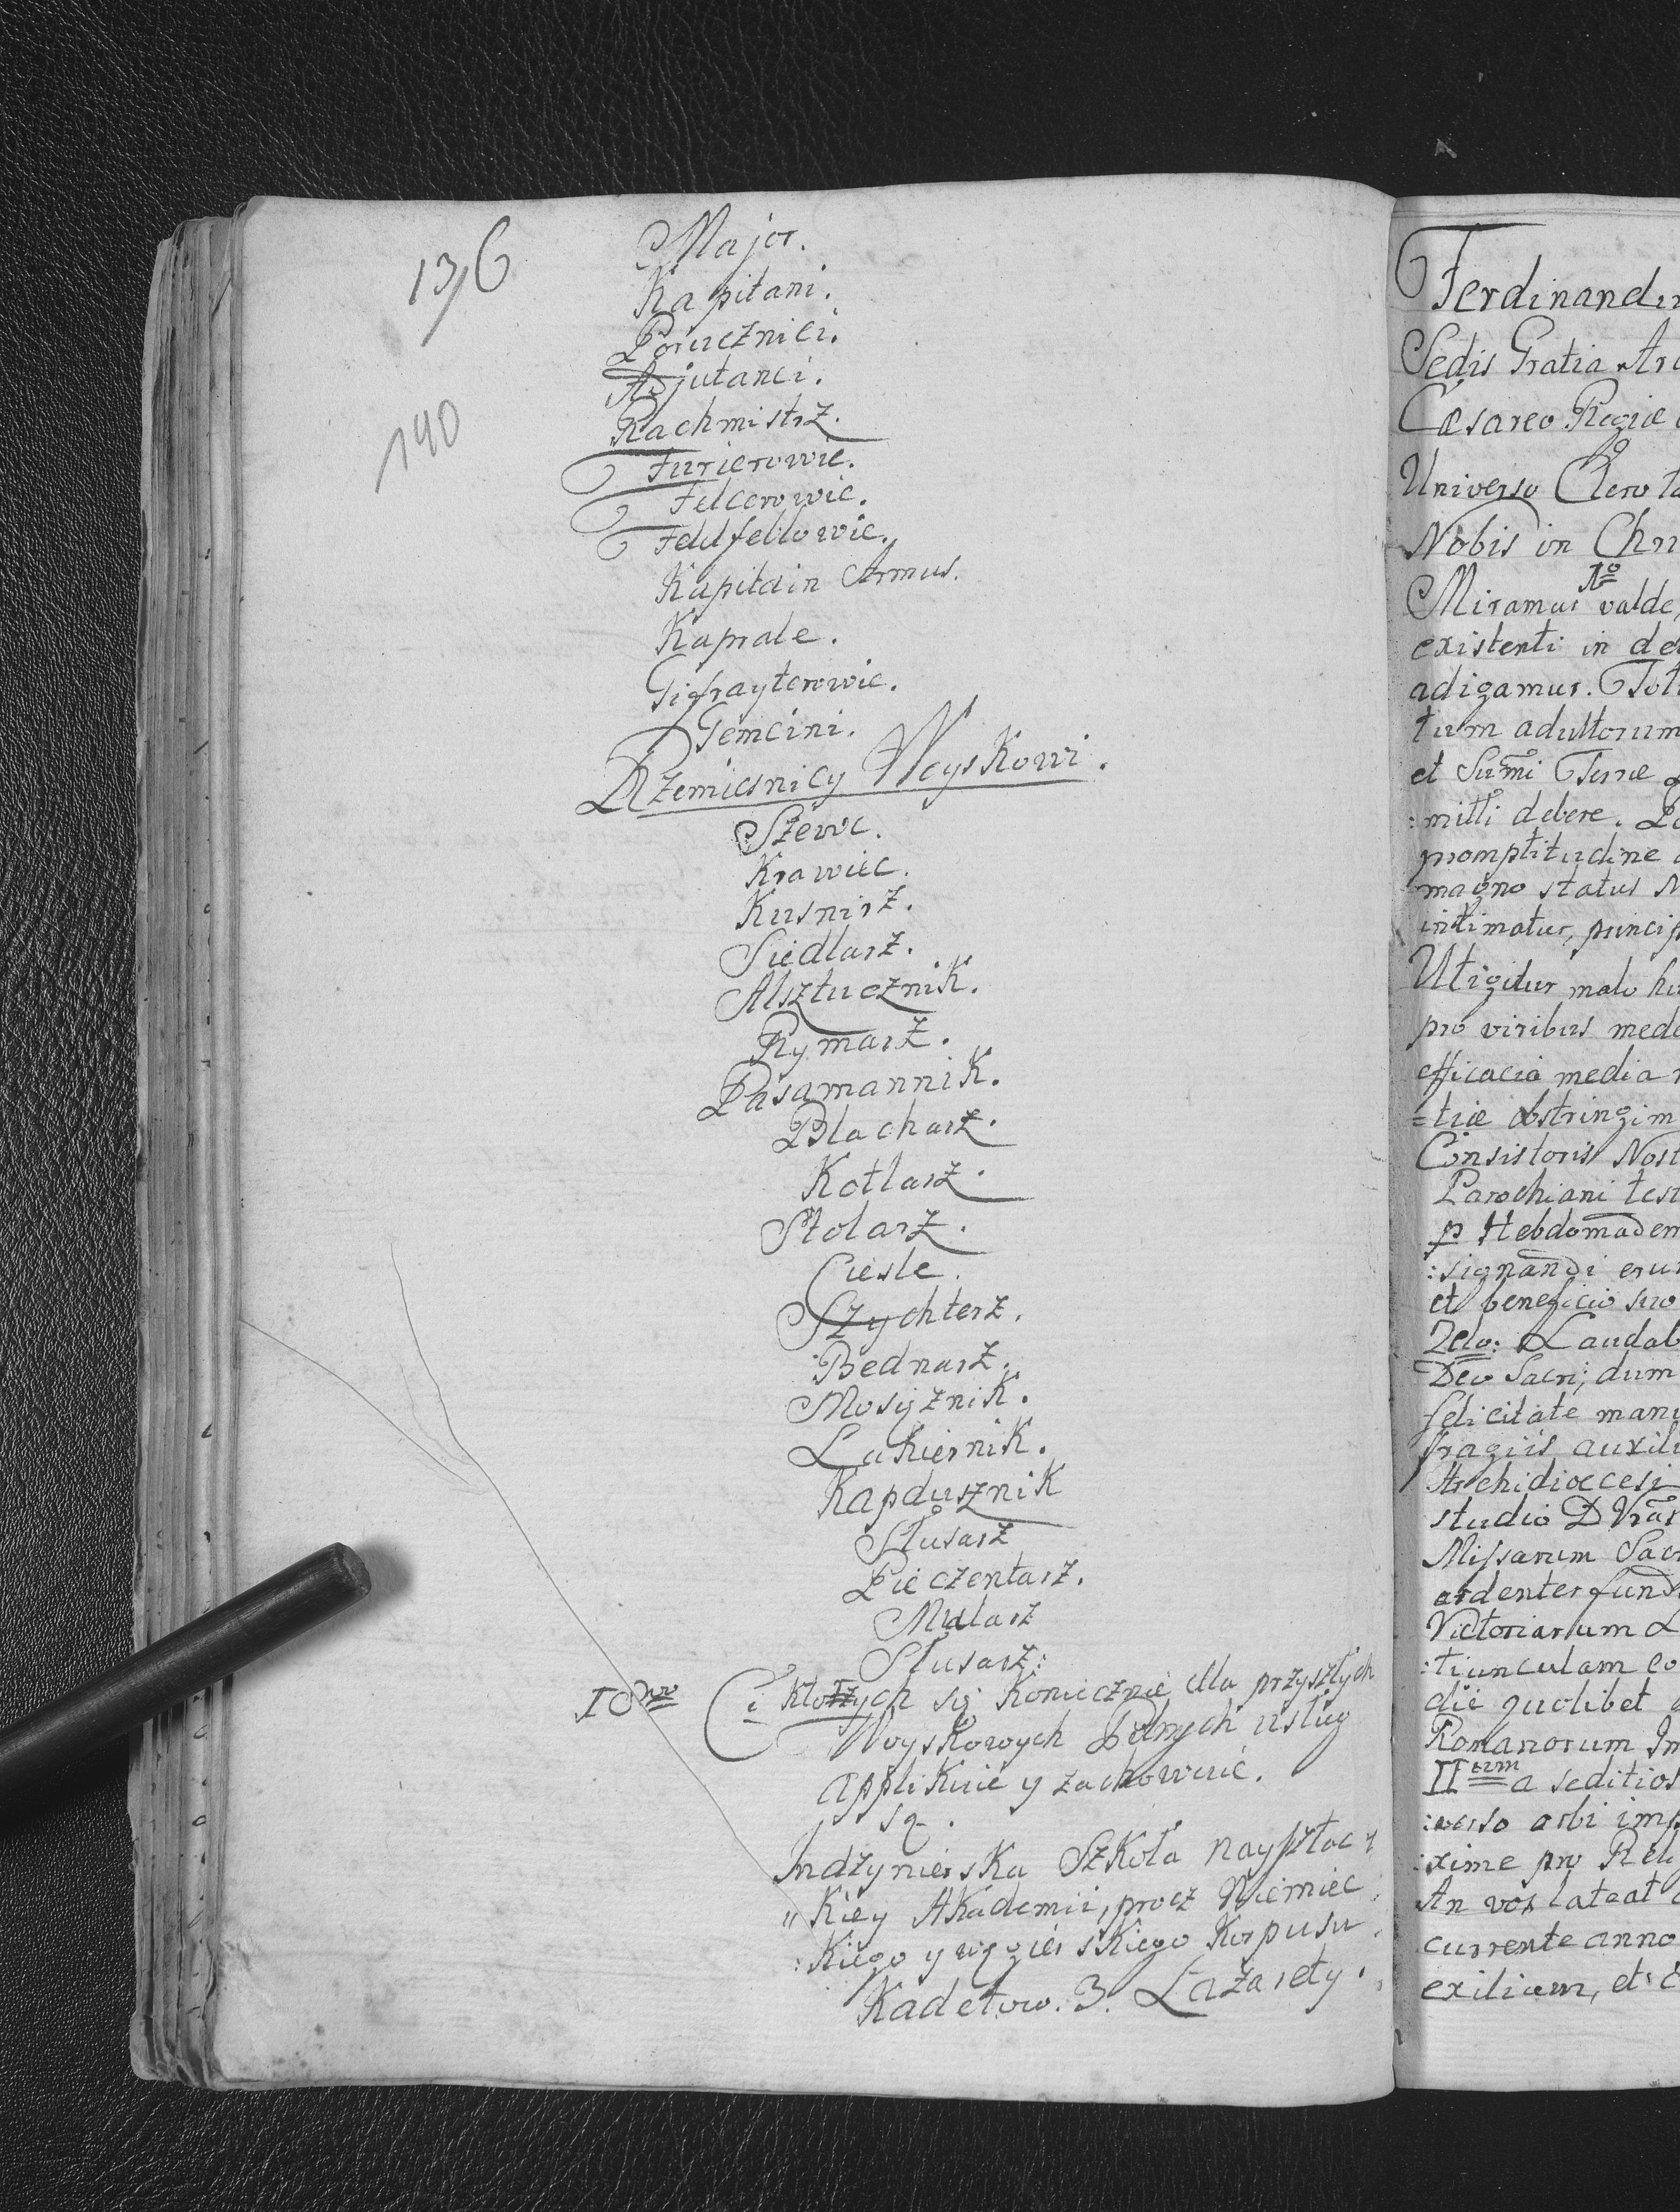 136
140
Major.
Kapitani.
Porucznici.
Adjutanci.
Rachmistrz.
Furierowie.
Felcerowie.
Feldfeblowie.
Kapitain Armus.
Kaprale.
Gifrayterowie.
Gemeini.
Rzemiesnicy Woyskowi.
Szewc.
Krawiec.
Kusnirz.
Siedlarz.
Alsztucznik.
Rymarz.
Pasamannik.
Blacharz.
Kotlarz.
Stolarz.
Ciesle.
Szychterz.
Bednarz.
Mosiężnik.
Lakiernik.
Kapdusznik
Slusarz
Pieczentarz.
Mularz
Slusarz:
10mo Ci Ktorzych się Koniecznie dla przyszłych
Woyskowych Polnych usług
applikuie y zachowuie.
są.
Indzynierska Szkoła
Kiey Akademii, procz Niemiec
:Kiego y węgierskiego Korpusu
Kadetow. 3. Lazarety.
Ferdinandu
Sedis Gratia Arc
Cæsareo Regiæ
Universo Clero
Nobis in Chri
1o
Miramur valde,
existenti in de
adigamur. Tot
tum adultorum
et Sumi Terræ
:mitti debere.
promptitudine
magno status
intimatur, princip
Utigitur malo hu
pro viribus mede
efficacia media
=tiæ obstringim
Consistoris Nost
Parochiani test
p Hebdomadem
:signandi eru
et beneficio suo
Zelo: Laudab
Deo Sacri; dum
felicitate manu
fragiis auxili
Archidiœcesi
studio D Vrar
Missarum Sac
ardenter fund
Victoriarum
:tiunculam co
die quolibet
Romanorum Im
IIum a seditios
:verso orbi imp
:xime pro Reli
An vos lateat
currente anno
exilium, et